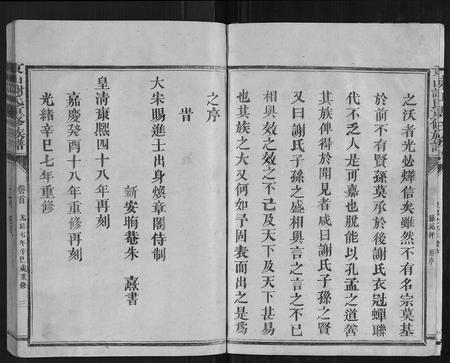 之沃者光必燁信矣雖然不有名宗莫基
於前不有賢孫莫承於後謝氏衣冠蟬聯
代不乏人是可嘉也脫能以孔孟之道啓
其族俾得於聞見者咸曰謝氏子孫之賢
又曰謝氏子孫之盛相與言之言之不已
相與齊之齊之不已及天下及天下甚易
也其族之大又何如予固表而出之是爲
之序
昔
大宋賜進士出身煥章閣侍制
新安晦菴朱 熹書
皇清康熙四十八年再刻
嘉慶癸酉十八年重修再刻
光緒辛巳七年重修
卷首
光緒七年辛巳歲重修
三